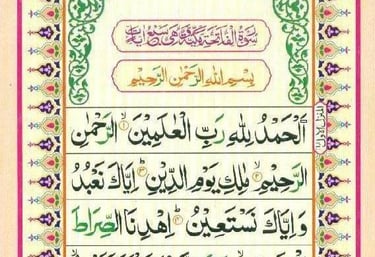 سُوْرَةُ الْفَاتِحَةِ مَكِّيَّةٌ وَّهِيَ سَبْعُ اٰيَاتٍ
بِسْمِ اللهِ الرَّحْمٰنِ الرَّحِيْمِ
اَلْحَمْدُ لِلّٰهِ رَبِّ الْعٰلَمِيْنَ ۙ﴿۱﴾ الرَّحْمٰنِ
الرَّحِيْمِ ۙ﴿۲﴾ مٰلِكِ يَوْمِ الدِّيْنِ ؕ﴿۳﴾ اِيَّاكَ نَعْبُدُ
وَاِيَّاكَ نَسْتَعِيْنُ ؕ﴿۴﴾ اِهْدِنَا الصِّرَاطَ